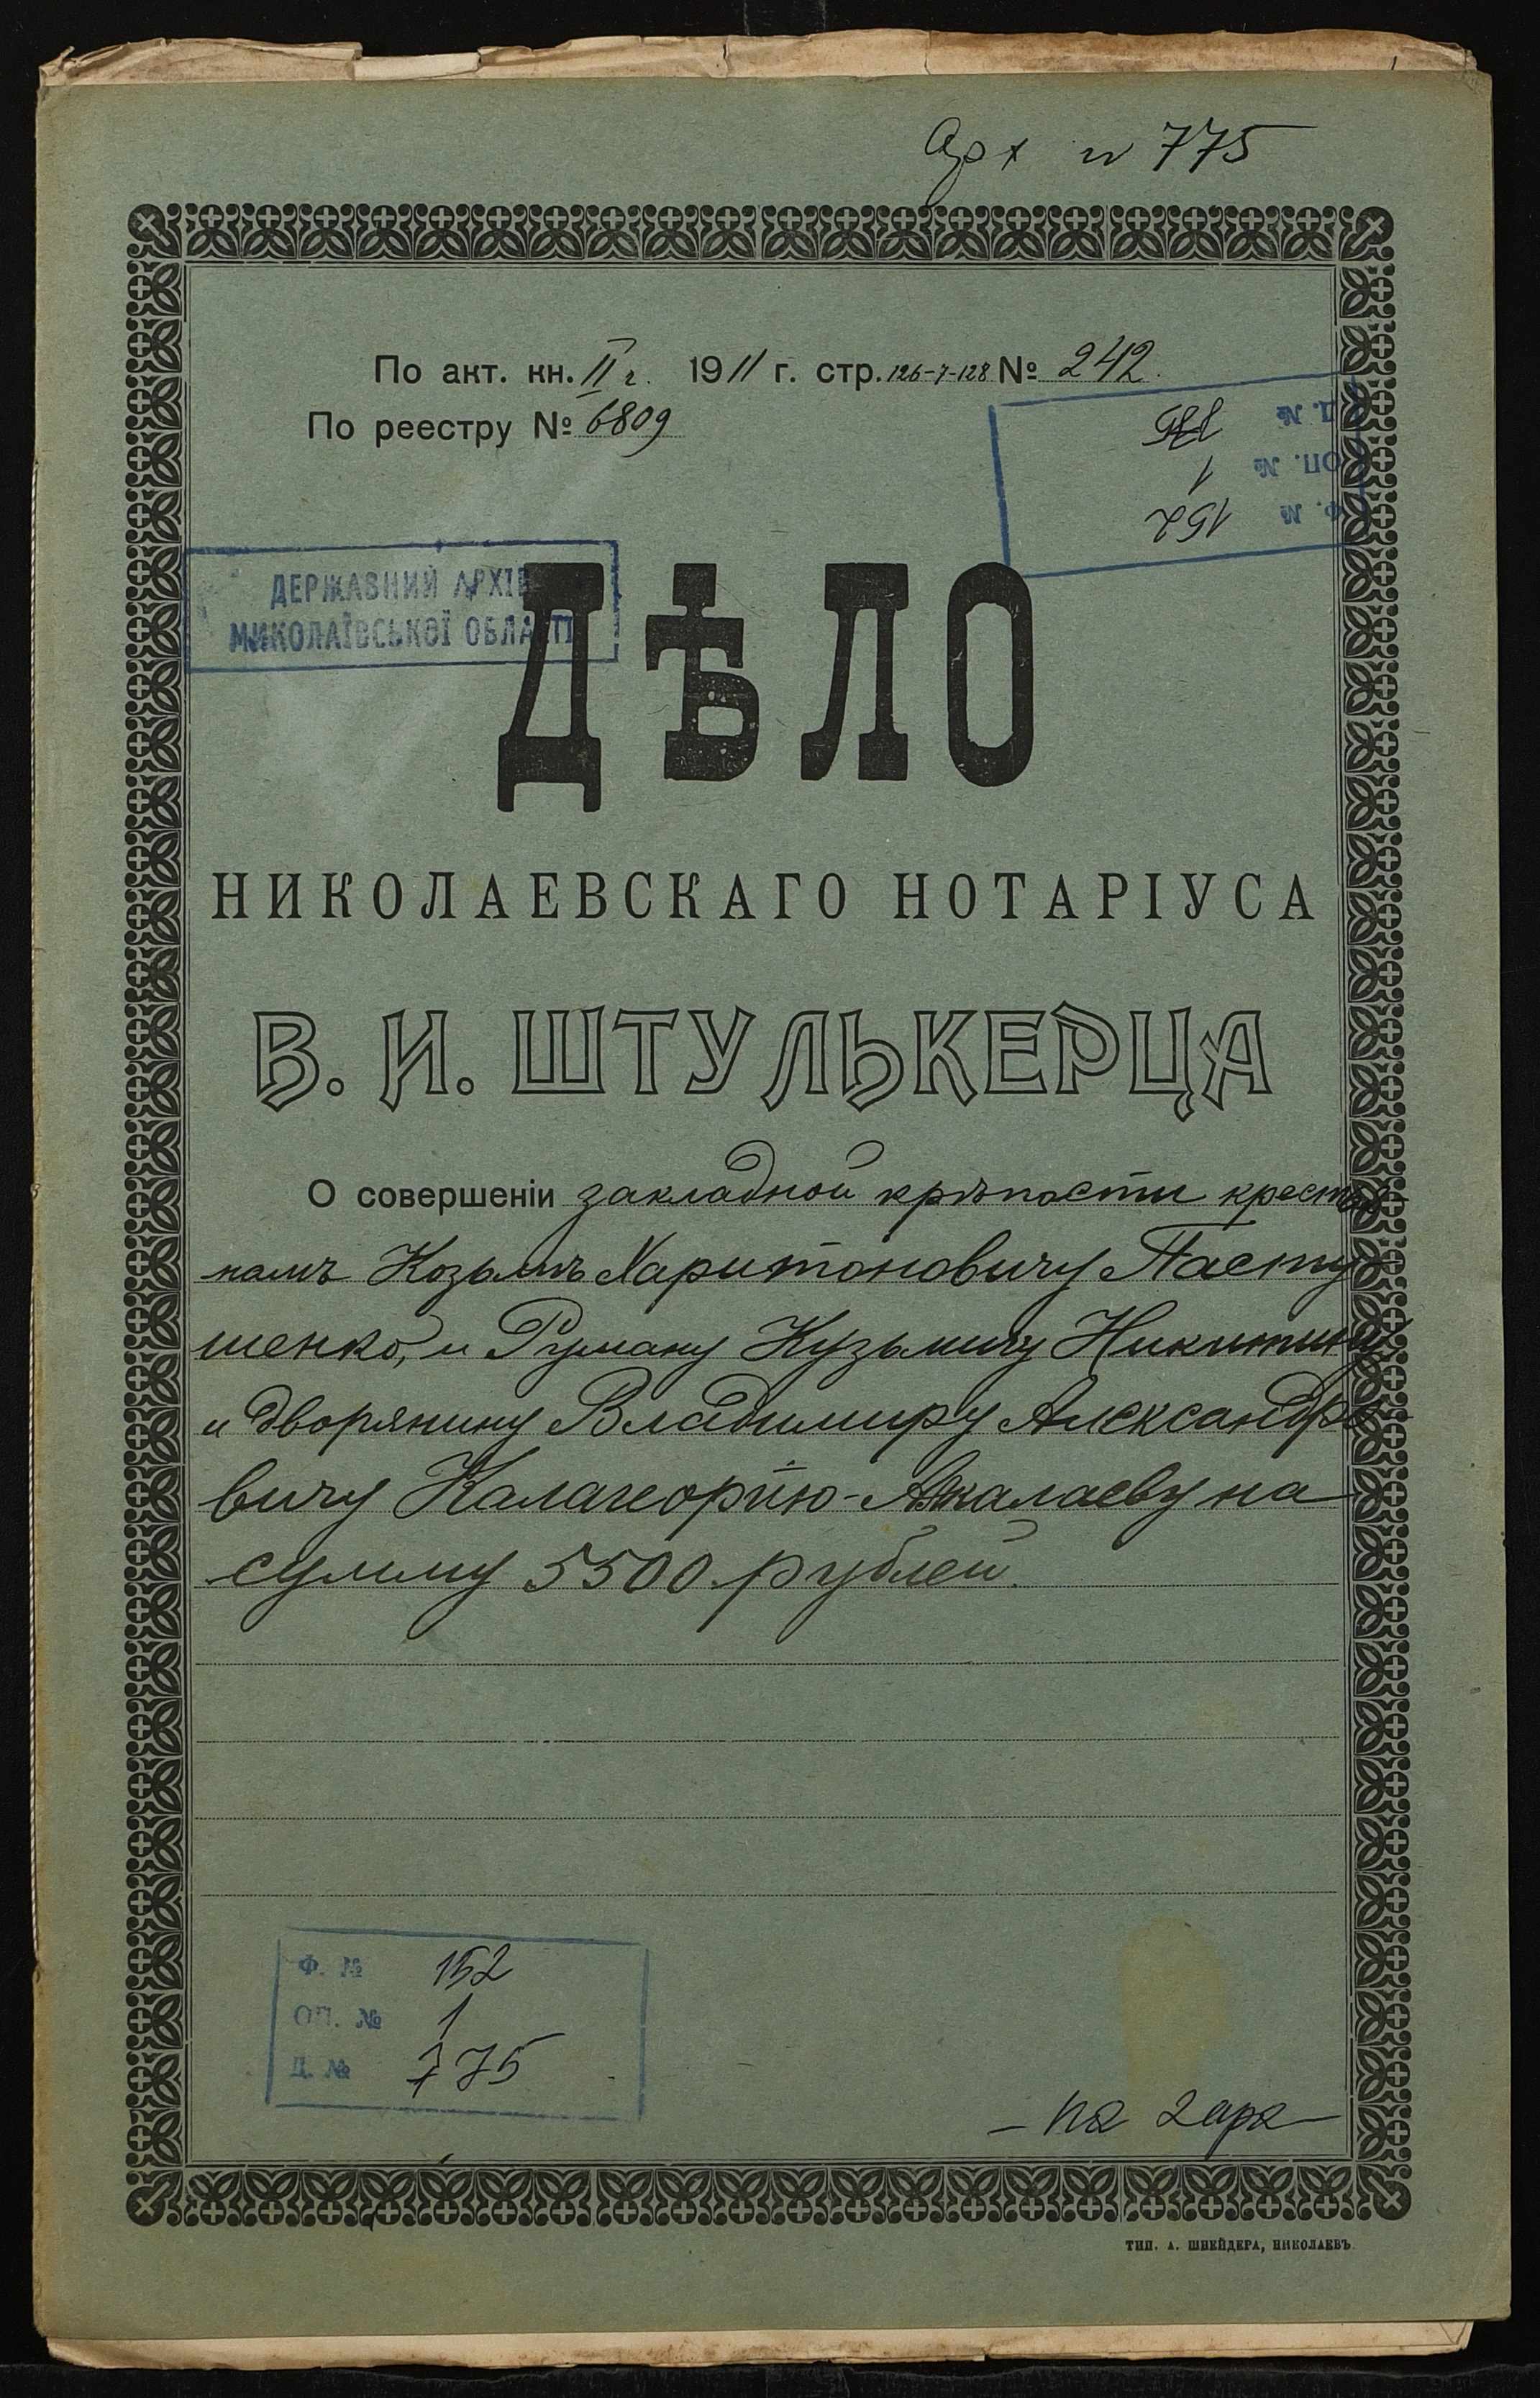 Арх № 775
По акт. кн. II г. 1911 г. стр. 126-7-128 № 242.
По реестру № 6809
Д. № 775
ОП. № 1
Ф. № 152
ДЕРЖАВНИЙ АРХІВ
МИКОЛАЇВСЬКОЇ ОБЛАСТІ
ДѢЛО
НИКОЛАЕВСКАГО НОТАРІУСА
В. И. ШТУЛЬКЕРЦА
О совершеніи закладной крѣпости крестья
намъ Козьмѣ Харитоновичу Пасту
шенко, и Роману Кузьмичу Никитину
и дворянину Владимиру Александро
вичу Калагеоргію-Алкалаеву на
сумму 5500 рублей.
Ф. № 152
ОП. № 1
Д. № 775
ТИП. А. ШНЕЙДЕРА, НИКОЛАЕВЪ.